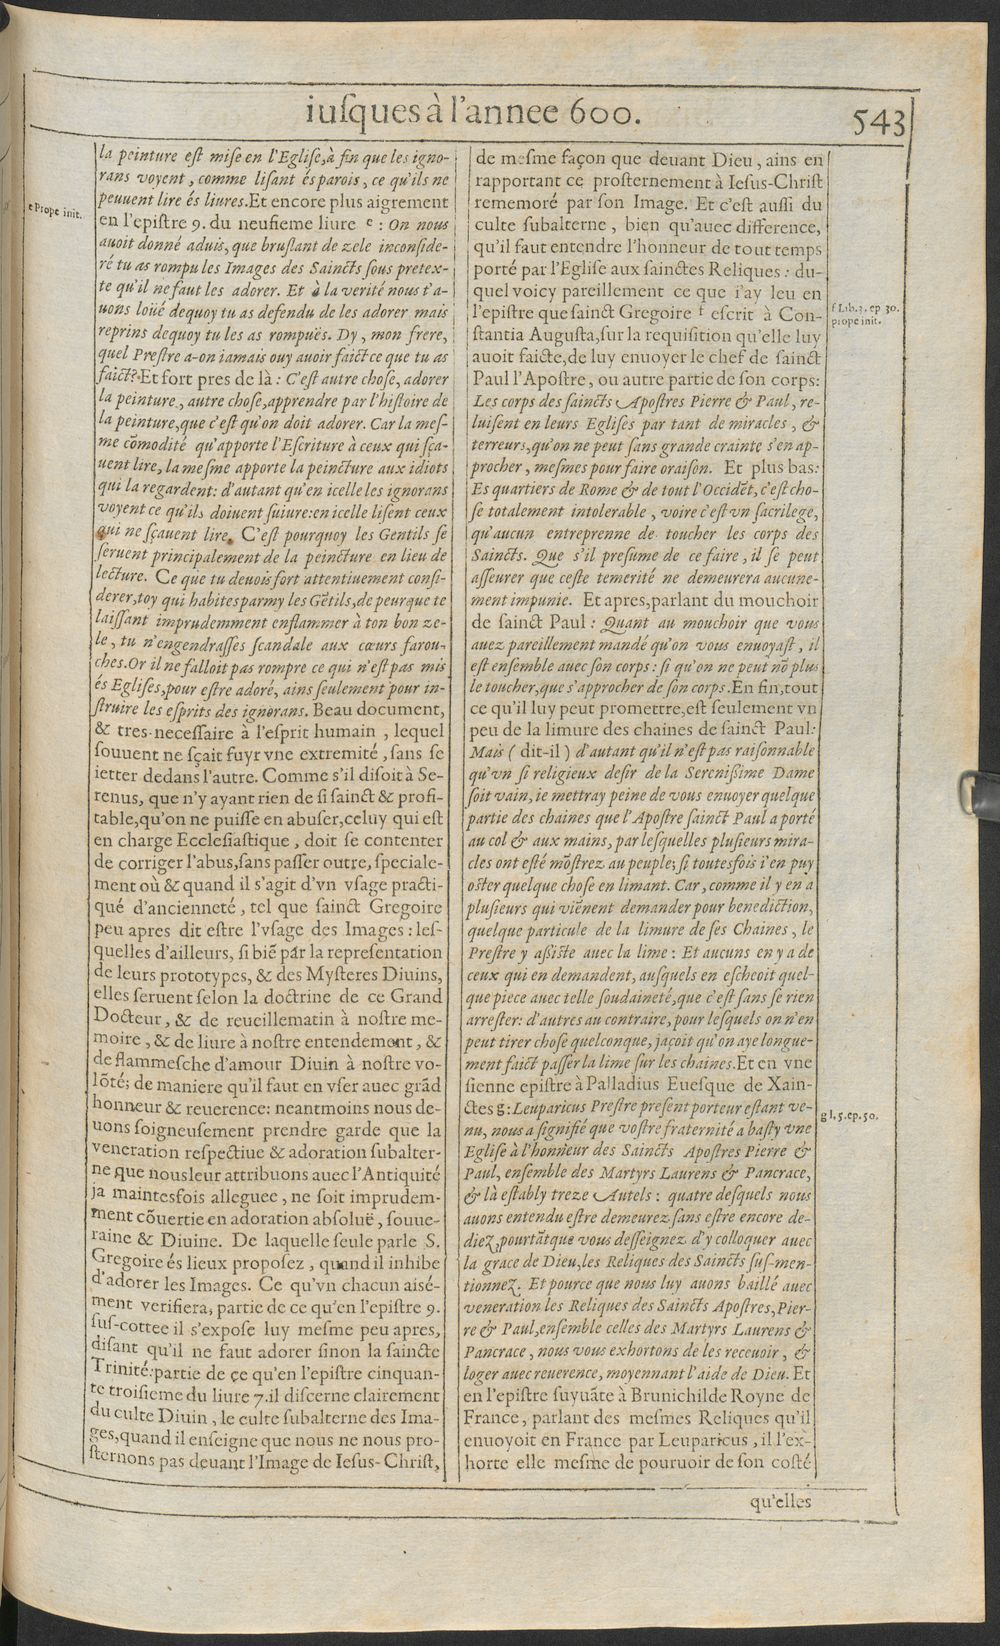 iuſques à l'annee 600.
543
la peinture eſt miſe en l'Egliſe,à fin que les igno-
rans voyent, comme liſant és parois, ce qu'ils ne
peuuent lire és liures.Et encore plus aigrement
e Prope init.
en l'epiſtre 9. du neufieme liure e : On nous
auoit donné aduis, que bruſlant de zele inconſide-
ré tu as rompu les Images des Saincts ſous pretex-
te qu'il ne faut les adorer. Et à la verité nous t'a-
uons loüé dequoy tu as defendu de les adorer mais
reprins dequoy tu les as rompuës. Dy, mon frere,
quel Preſtre a-on iamais ouy auoir faict ce que tu as
faict? Et fort pres de là : C'eſt autre choſe, adorer
la peinture, autre choſe,apprendre par l'hiſtoire de
la peinture,que c'eſt qu'on doit adorer. Car la meſ-
me cõmodité qu'apporte l'Eſcriture à ceux qui ſça-
uent lire, la meſme apporte la peincture aux idiots
qui la regardent: d'autant qu'en icelle les ignorans
voyent ce qu'ils doiuent ſuiure:en icelle liſent ceux
qui ne ſçauent lire. C'eſt pourquoy les Gentils ſe
ſeruent principalement de la peincture en lieu de
lecture. Ce que tu deuois fort attentiuement conſi-
derer,toy qui habites parmy les Gẽtils,de peur que te
laiſſant imprudemment enflammer à ton bon ze-
le, tu n'engendraſſes ſcandale aux cœurs farou-
ches.Or il ne falloit pas rompre ce qui n'eſt pas mis
és Egliſes,pour eſtre adoré, ains ſeulement pour in-
ſtruire les eſprits des ignorans. Beau document,
& tres-neceſſaire à l'eſprit humain, lequel
ſouuent ne ſçait fuyr vne extremité, ſans ſe
ietter dedans l'autre. Comme s'il diſoit à Se-
renus, que n'y ayant rien de ſi ſainct & profi-
table,qu'on ne puiſſe en abuſer,celuy qui eſt
en charge Eccleſiaſtique, doit ſe contenter
de corriger l'abus,ſans paſſer outre, ſpeciale-
ment où & quand il s'agit d'vn vſage practi-
qué d'ancienneté, tel que ſainct Gregoire
peu apres dit eſtre l'vſage des Images : leſ-
quelles d'ailleurs, ſi biẽ par la repreſentation
de leurs prototypes, & des Myſteres Diuins,
elles ſeruent ſelon la doctrine de ce Grand
Docteur, & de reueillematin à noſtre me-
moire, & de liure à noſtre entendement, &
de flammeſche d'amour Diuin à noſtre vo-
lõté; de maniere qu'il faut en vſer auec grãd
honneur & reuerence: neantmoins nous de-
uons ſoigneuſement prendre garde que la
veneration reſpectiue & adoration ſubalter-
ne que nousleur attribuons auec l'Antiquité
ja maintesfois alleguee, ne ſoit imprudem-
ment cõuertie en adoration abſoluë, ſouue-
raine & Diuine. De laquelle ſeule parle S.
Gregoire és lieux propoſez, quand il inhibe
d'adorer les Images. Ce qu'vn chacun aisé-
ment verifiera, partie de ce qu'en l'epiſtre 9.
ſuſ-cottee il s'expoſe luy meſme peu apres,
diſant qu'il ne faut adorer ſinon la ſaincte
Trinité:partie de ce qu'en l'epiſtre cinquan-
te troiſieme du liure 7.il diſcerne clairement
du culte Diuin, le culte ſubalterne des Ima-
ges,quand il enſeigne que nous ne nous pro-
ſternons pas deuant l'Image de Ieſus-Chriſt,
de meſme façon que deuant Dieu, ains en
rapportant ce proſternement à Ieſus-Chriſt
rememoré par ſon Image. Et c'eſt auſſi du
culte ſubalterne, bien qu'auec difference,
qu'il faut entendre l'honneur de tout temps
porté par l'Egliſe aux ſainctes Reliques : du-
quel voicy pareillement ce que i'ay leu en
l'epiſtre que ſainct Gregoire f eſcrit à Con-
f Lib.3. ep 30.
prope init.
ſtantia Auguſta,ſur la requiſition qu'elle luy
auoit faicte,de luy enuoyer le chef de ſainct
Paul l'Apoſtre, ou autre partie de ſon corps:
Les corps des ſaincts Apoſtres Pierre & Paul, re-
luiſent en leurs Egliſes par tant de miracles, &
terreurs,qu'on ne peut ſans grande crainte s'en ap-
procher, meſmes pour faire oraiſon. Et plus bas:
Es quartiers de Rome & de tout l'Occidẽt, c'eſt cho-
ſe totalement intolerable, voire c'eſt vn ſacrilege,
qu'aucun entreprenne de toucher les corps des
Saincts. Que s'il preſume de ce faire, il ſe peut
aſſeurer que ceſte temerité ne demeurera aucune-
ment impunie. Et apres,parlant du mouchoir
de ſainct Paul : Quant au mouchoir que vous
auez pareillement mandé qu'on vous enuoyaſt, il
eſt enſemble auec ſon corps : ſi qu'on ne peut nõ plus
le toucher,que s'approcher de ſon corps. En fin,tout
ce qu'il luy peut promettre,eſt ſeulement vn
peu de la limure des chaines de ſainct Paul:
Mais ( dit-il ) d'autant qu'il n'eſt pas raiſonnable
qu'vn ſi religieux deſir de la Sereniſſime Dame
ſoit vain, ie mettray peine de vous enuoyer quelque
partie des chaines que l'Apoſtre ſainct Paul a porté
au col & aux mains, par leſquelles pluſieurs mira-
cles ont eſté mõſtrez au peuple; ſi toutesfois i'en puy
oſter quelque choſe en limant. Car, comme il y en a
pluſieurs qui viẽnent demander pour benediction,
quelque particule de la limure de ſes Chaines, le
Preſtre y aßiſte auec la lime : Et aucuns en y a de
ceux qui en demandent, auſquels en eſcheoit quel-
que piece auec telle ſoudaineté,que c'eſt ſans ſe rien
arreſter: d'autres au contraire, pour leſquels on n'en
peut tirer choſe quelconque, jaçoit qu'on aye longue-
ment faict paſſer la lime ſur les chaines.Et en vne
ſienne epiſtre à Palladius Eueſque de Xain-
ctes g: Leuparicus Preſtre preſent porteur eſtant ve-
g l.5.ep.50.
nu, nous a ſignifié que voſtre fraternité a baſty vne
Egliſe à l'honneur des Saincts Apoſtres Pierre &
Paul, enſemble des Martyrs Laurens & Pancrace,
& là eſtably treze Autels : quatre deſquels nous
auons entendu eſtre demeurez ſans eſtre encore de-
diez,pourtãt que vous deſſeignez d'y colloquer auec
la grace de Dieu,les Reliques des Saincts ſuſ-men-
tionnez. Et pource que nous luy auons baillé auec
veneration les Reliques des Saincts Apoſtres,Pier-
re & Paul,enſemble celles des Martyrs Laurens &
Pancrace, nous vous exhortons de les receuoir, &
loger auec reuerence, moyennant l'aide de Dieu. Et
en l'epiſtre ſuyuãte à Brunichilde Royne de
France, parlant des meſmes Reliques qu'il
enuoyoit en France par Leuparicus, il l'ex-
horte elle meſme de pouruoir de ſon coſté
qu'elles